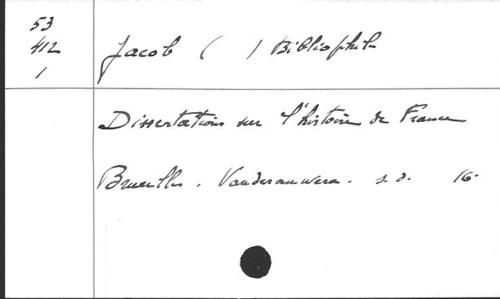 53
412
1
Jacob ( ) Bibliophile
Dissertations sur l'histoire de France
Bruxelles. Vanderauwera. s.d. 16-